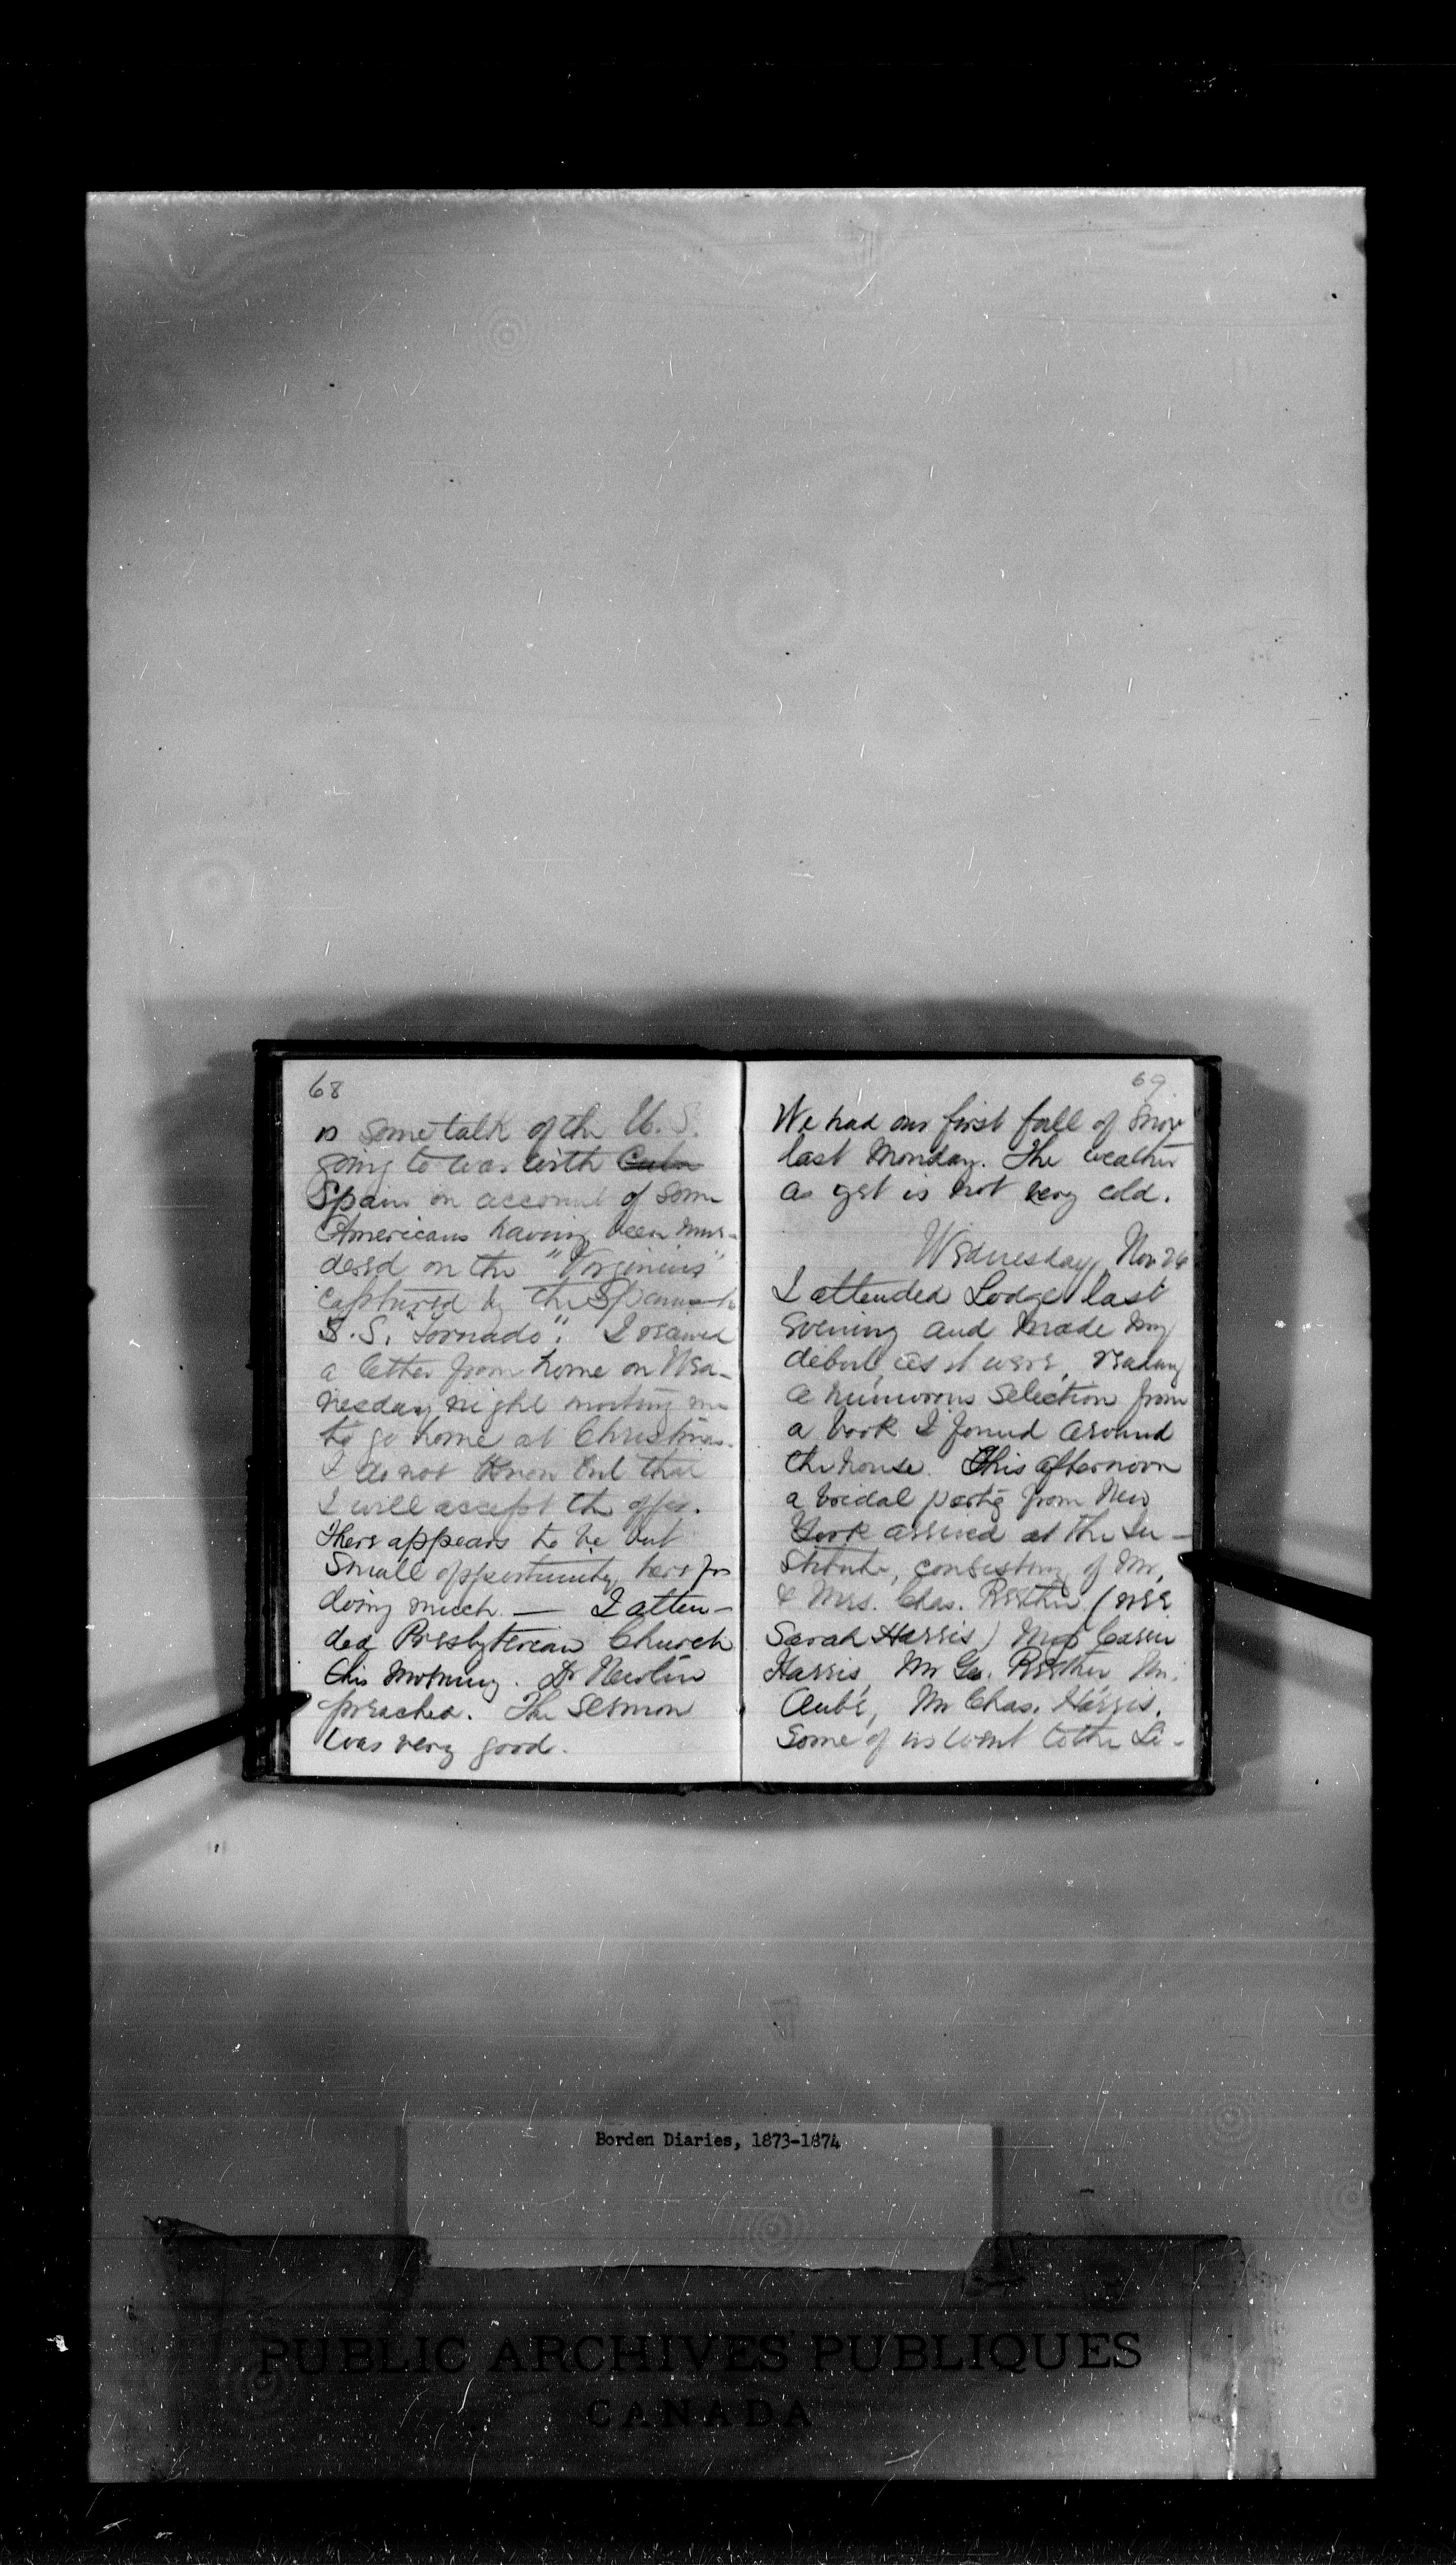 68
is some talk of the U. S.
going to war with Cuba
Spain on account of some
Americans having been mur-
dered on the "Virginius"
captured by the Spanish
S. S. "Tornado". I received
a letter from home on Wed-
nesday night inviting me
to go home at Christmas.
I do not know but that
I will accept the offer.
There appears to be but
small opportunity here for
doing much — I atten-
ded Presbyterian Church
this morning. Dr Newlin
preached. The sermon
was very good.
69
We had our first fall of snow
last Monday. The weather
as yet is not very cold.
Wednesday, Nov 26
I attended Lodge last
evening and made my
debut, as it were, reading
a humorous selection from
a book I found around
the house. This afternoon
a bridal party from New
York arrived at the In-
stitute, consisting of Mr.
& Mrs. Chas. (nee
Sarah Harris) Miss Carrie
Harris, Mr Geo. Mr.
Aubé, Mr Chas. Harris.
Some of us went to the Li-
Borden Diaries, 1873-1874
PUBLIC ARCHIVES PUBLIQUES
CANADA